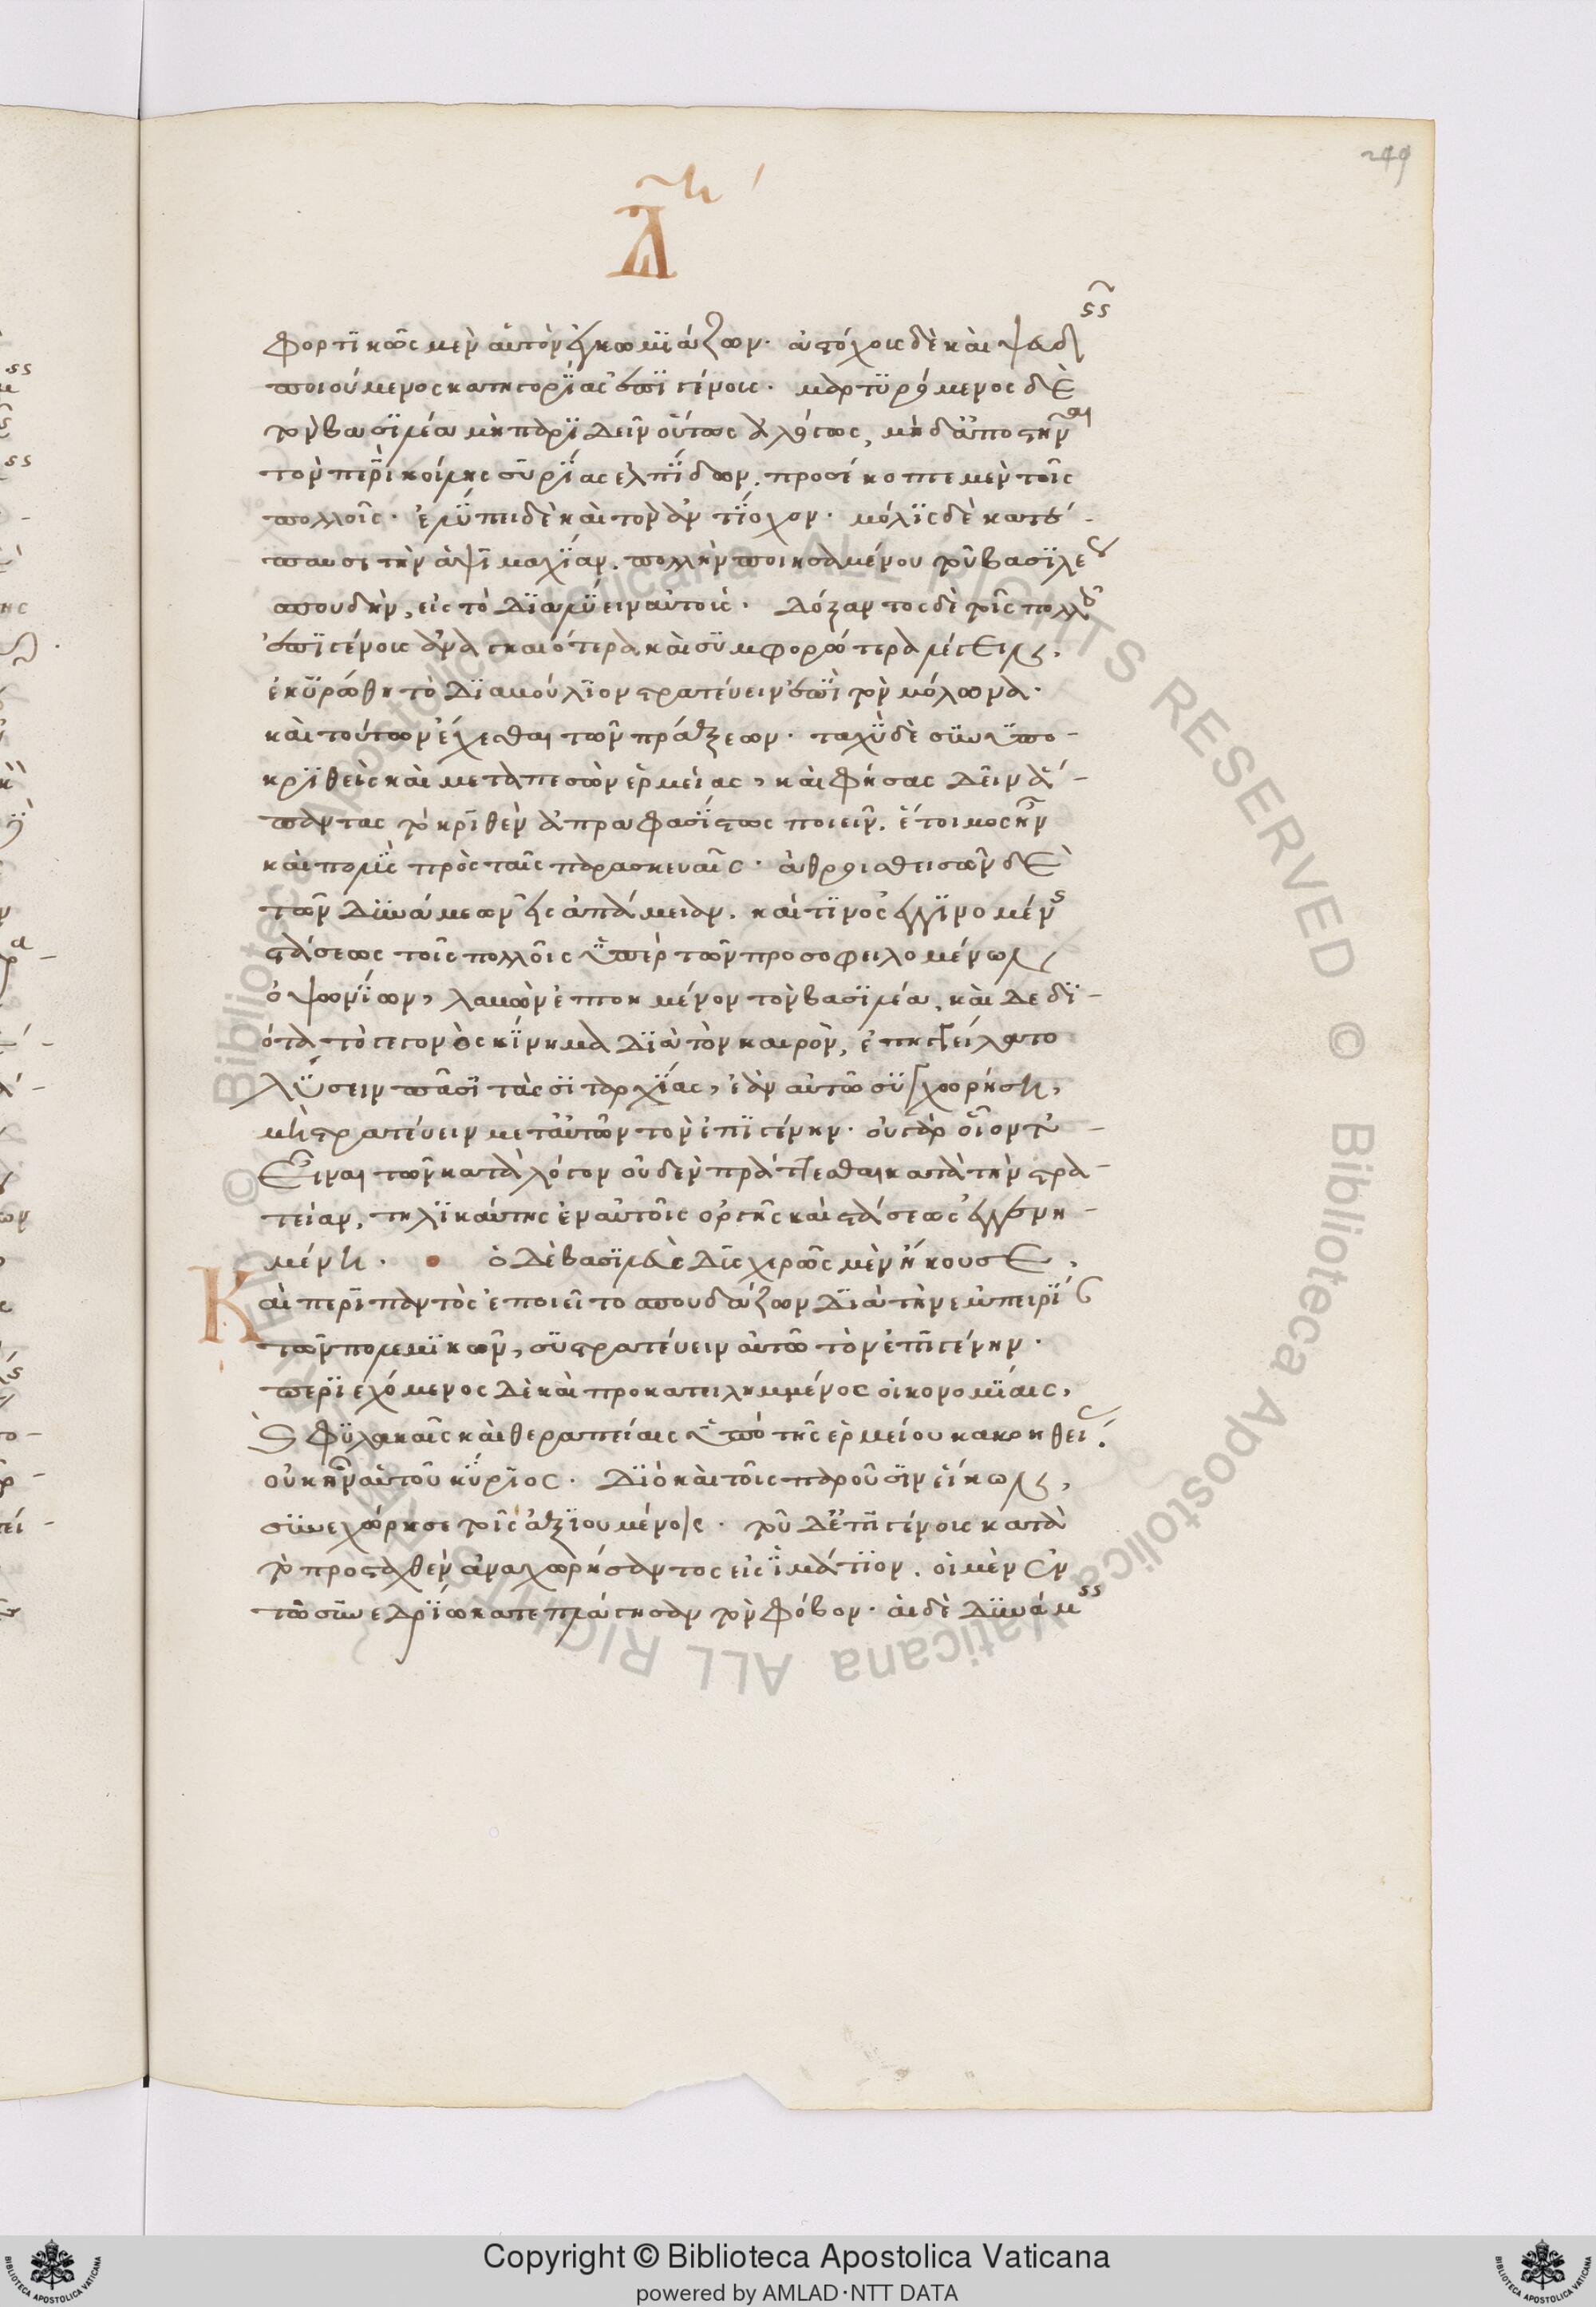 249
φορτικῶς μὲν αὐτὸν ἐγκωμιάζων· ἀστόχοις δὲ καὶ ψευδεῖς
ποιούμενος κατηγορίας ἐπιγένοις· μαρτυρόμενος δὲ
τὸν βασιλέα μὴ παριδεῖν οὕτως ἀλόγως, μὴδ' ἀποστῆναι
τὸν περὶ κοίλης συρίας ἐλπίδων. προσέκοπτε μὲν τοῖς
πολλοῖς· ἐλύπει δὲ καὶ τὸν ἀντίοχον· μόλις δὲ κατέ-
παυσε τὴν ἀψιμαχίαν. πολλὴν ποιησαμένου τοῦ βασιλέως
σπουδὴν, εἰς τὸ διαλύειν αὐτούς· δόξαντος δὲ τοῖς πολλοῖς
ἐπιγένοις ἀναγκαιότερα καὶ συμφορώτερα λέγειν,
ἐκυρώθη τὸ διαβούλιον στρατεύειν ἐπὶ τὸν μόλωνα·
καὶ τούτων ἔχεσθαι τῶν πράξεων· ταχὺ δὲ συνυπο-
κριθεὶς καὶ μεταπεσὼν ἑρμείας, καὶ φήσας δεῖν ἅ-
παντας τὸ κριθὲν ἀπροφασίστως ποιεῖν. ἕτοιμος ἦν
καὶ πολὺς πρὸς ταῖς παρασκευαῖς· ἁθροισθεισῶν δὲ
τῶν δυνάμεων εἰς ἀπάμειαν. καί τινος ἐγγινομένης
στάσεως τοῖς πολλοῖς ὑπὲρ τῶν προσοφειλομένων
ὀψωνίων, λαβὼν ἐπτοημένον τὸν βασιλέα, καὶ δεδι-
ότα τὸ γεγονὸς κίνημα διὰ τὸν καιρὸν, ἐπηγγείλατο
λύσειν πᾶσι τὰς σιταρχίας, ἐὰν αὐτῷ συγχωρήσῃ,
μὴ στρατεύειν μετ' αὐτῶν τὸν ἐπιγένην· οὐ γὰρ οἷόν τ'
εἶναι τῶν κατὰ λόγον οὐδὲν πράττεσθαι κατὰ τὴν στρα-
τείαν, τηλικαύτης ἐν αὐτοῖς ὀργῆς καὶ στάσεως ἐγγενη-
μένης· ὁ δὲ βασιλεὺς δυσχερῶς μὲν ἤκουσε,
Καὶ περὶ παντὸς ἐποιεῖτο σπουδάζων διὰ τὴν ἐμπειρίαν
τῶν πολεμικῶν, συστρατεύειν αὐτῷ τὸν ἐπιγένην·
περιεχόμενος δὲ καὶ προκατειλημμένος οἰκονομίαις,
καὶ φυλακαῖς καὶ θεραπείαις ὑπὸ τῆς ἑρμείου κακοηθείας.
οὐκ ἦν αὐτοῦ κύριος· διὸ καὶ τοῖς παροῦσιν εἴκων,
συνεχώρησε τοῖς ἀξιουμένοις· τοῦ δ' ἐπιγένοις κατὰ
τὸ προσταχθὲν ἀναχωρήσαντος εἰς ἱμάτιον. οἱ μὲν ἐν
τῷ συνεδρίῳ κατεπλάγησαν τὸν φόβον· αἱ δὲ δυνάμεις